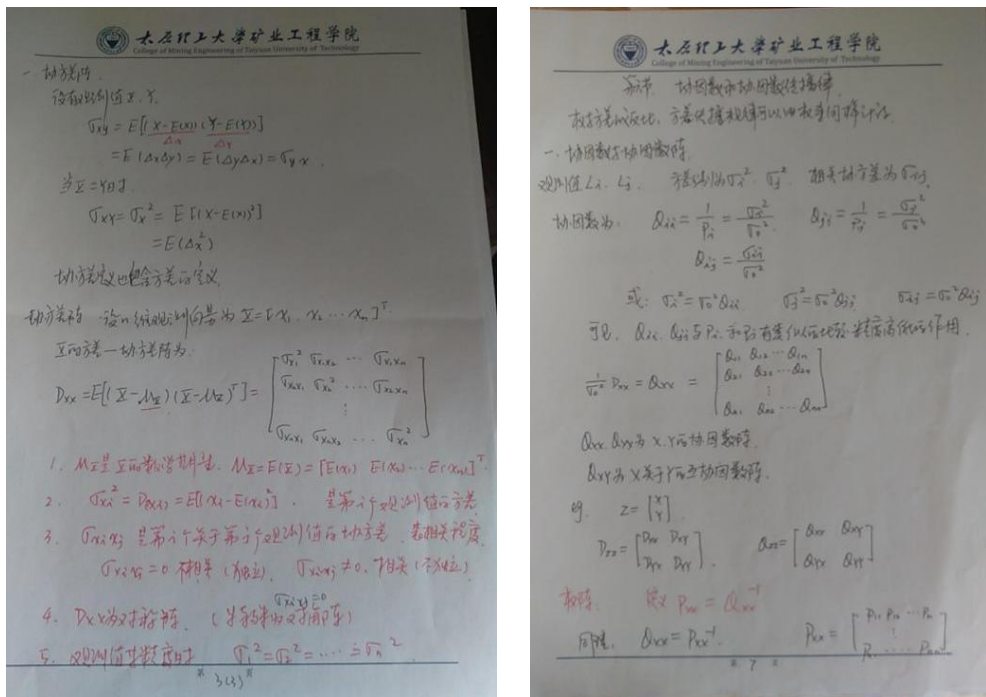 太原理工大学矿业工程学院
College of Mining Engineering of Taiyuan University of Technology
一 协方差阵.
设有观测值 X、Y.
σxy = E[(X-E(X))(Y-E(Y))]
Δx Δy
= E(ΔxΔy) = E(ΔyΔx) = σyx.
当X=Y时.
σxy = σx² = E[(X-E(X))²]
= E(Δx²)
协方差定义也包含方差的定义.
协方差阵 设n维观测向量为 X=[X1. X2 ... Xn]^T.
X的方差-协方差阵为:
Dxx = E[(X-μX)(X-μX)^T] =
σx1² σx1x2 ... σx1xn
σx2x1 σx2² .... σx2xn
⋮
σxnx1 σxnx2 ... σxn²
1. μX是X的数学期望. μX=E(X)=[E(X1) E(X2)... E(Xn)]^T.
2. σxi² = Dxixi = E[(Xi-E(Xi))²]. 是第i个观测值的方差.
3. σxixj 是第i个关于第j个观测值的协方差. 表相关程度.
σxixj=0 不相关(独立). σxixj≠0. 相关(不独立)
σxixj=0
4. Dxx为对称阵. (为对角阵)
5. 观测值等精度时 σ1²=σ2²= ···· =σn².
* 3(3) *
太原理工大学矿业工程学院
College of Mining Engineering of Taiyuan University of Technology
协因数和协因数传播律.
权与方差成反比. 方差传播规律可以由权来同样讨论.
一. 协因数与协因数阵.
观测值Li、Lj. 方差分别为σi²、σj². 相关协方差为σij.
协因数为: Qii = 1/Pi = σi²/σ0² Qjj = 1/Pj = σj²/σ0²
Qij = σij/σ0²
或: σi²=σ0²Qii σj²=σ0²Qjj σij=σ0²Qij
可见. Qii、Qjj与Pi和Pj有类似的比较精度高低的作用.
1/σ0² Dxx = Qxx =
Q11 Q12 ··· Q1n
Q21 Q22 ··· Q2n
⋮
Qn1 Qn2 ··· Qnn
Qxx. Qyy为X.Y的协因数阵.
Qxy为X关于Y的互协因数阵.
Z = [X Y]
Dzz = [Dxx Dxy Dyx Dyy]. Qzz = [Qxx Qxy Qyx Qyy]
权阵. 定义 Pxx = Qxx⁻¹
同理. Qxx = Pxx⁻¹. Pxx = [P11 P12 ··· P1n ⋮ Pn1 ···· Pnn]
* 7 *